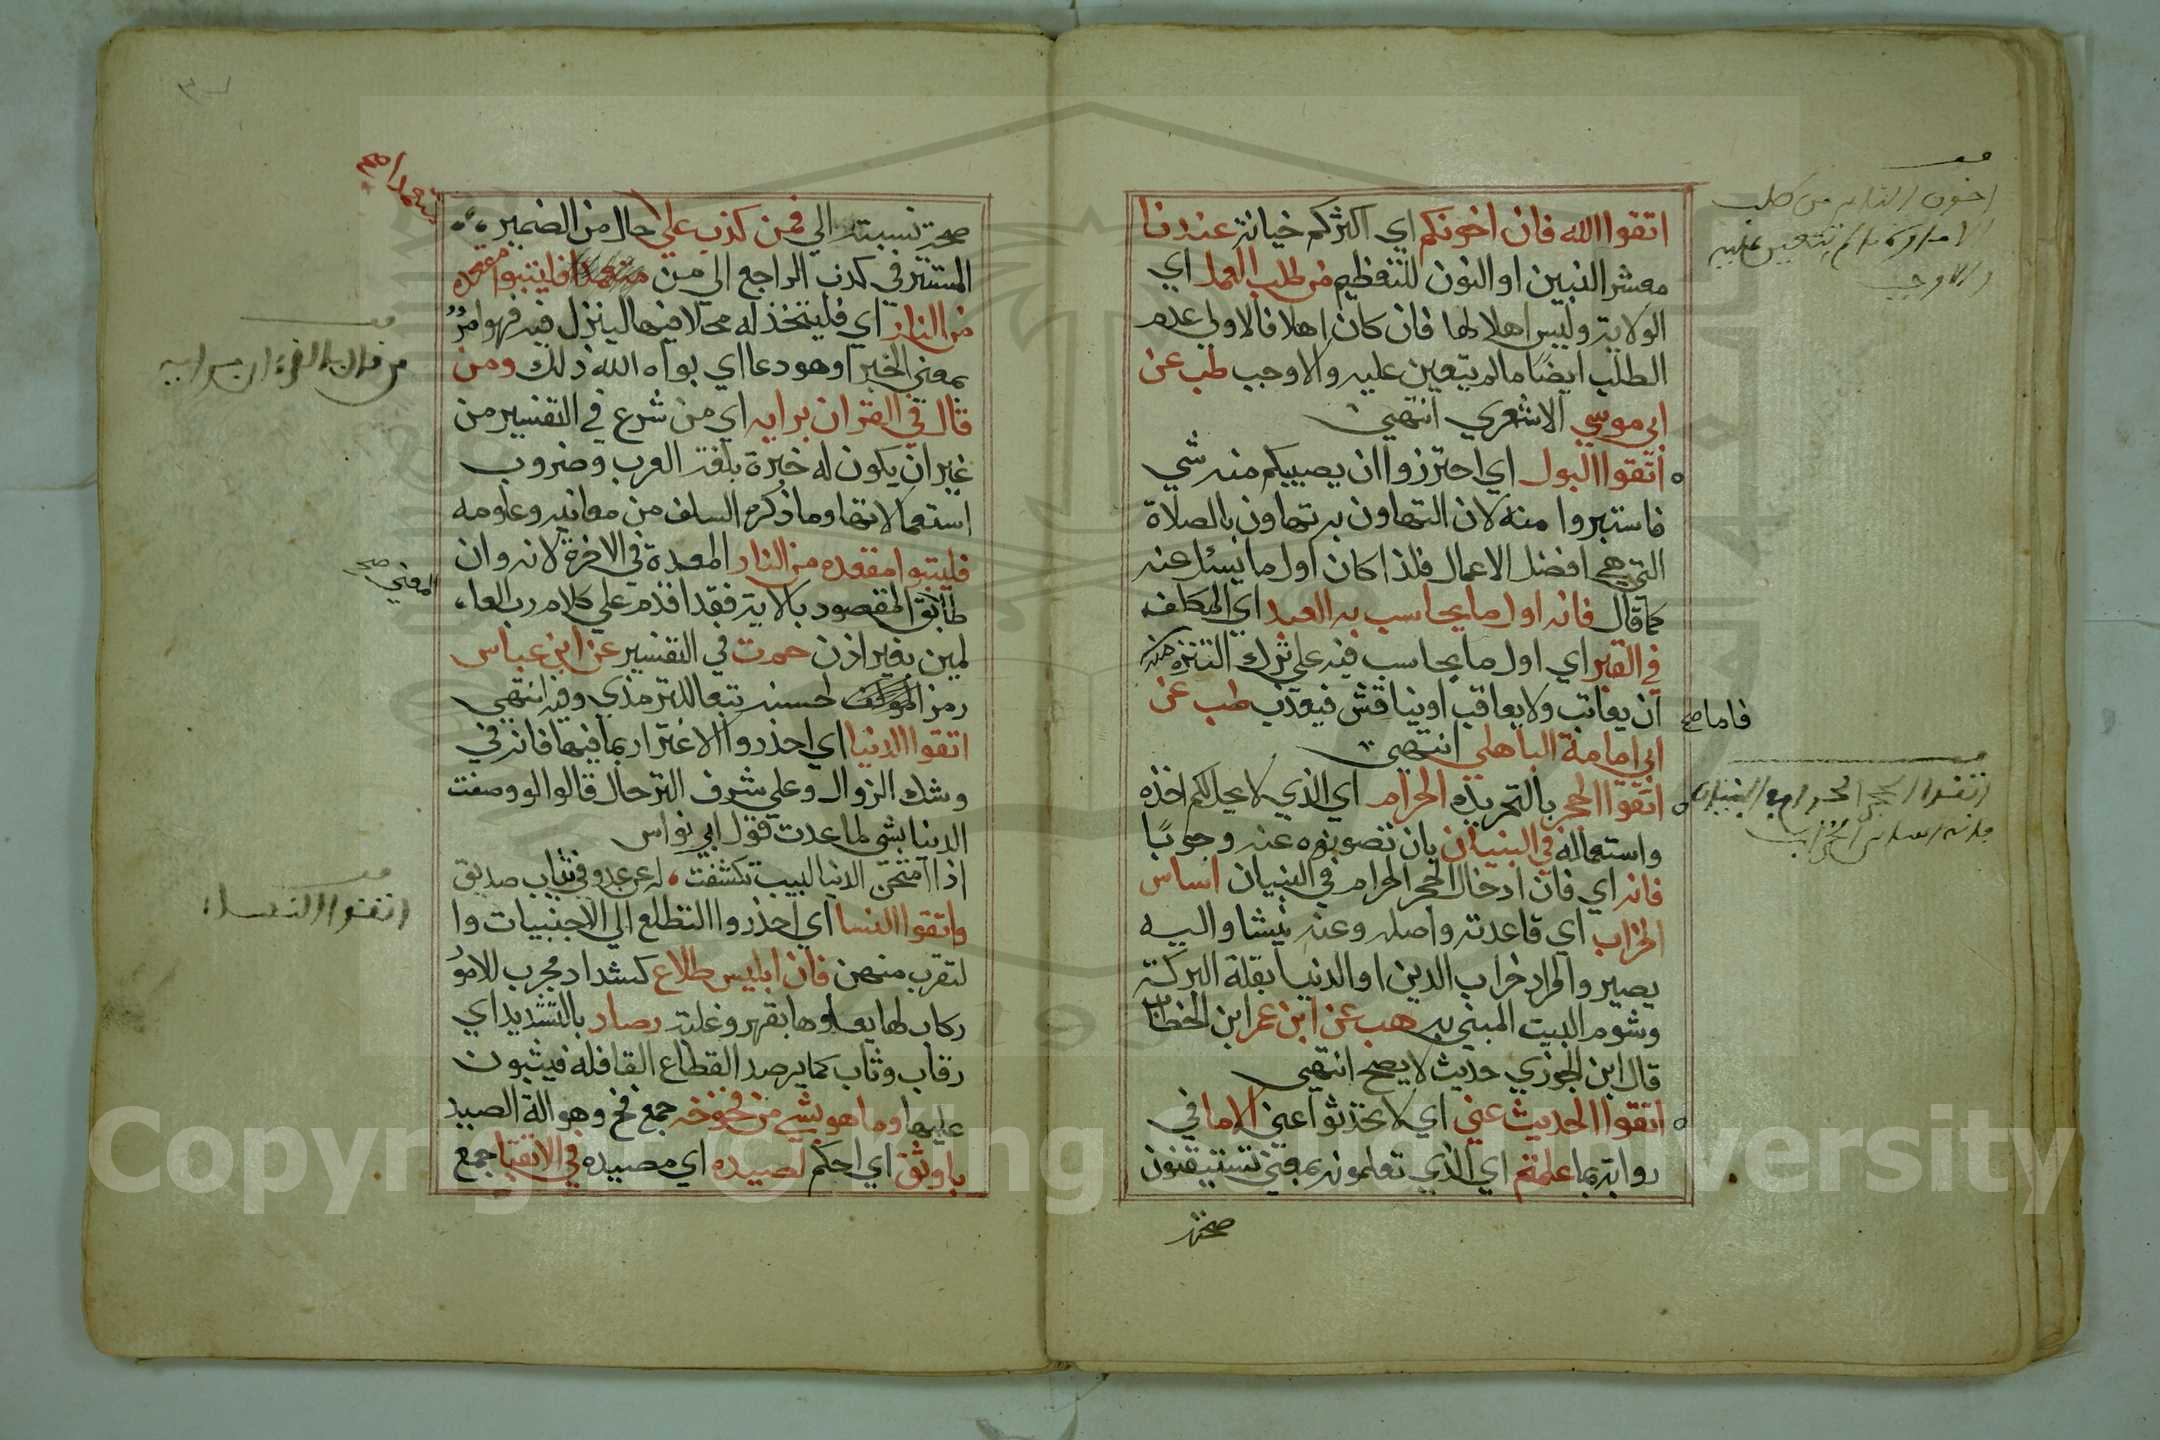 اتقوا الله فان اخونكم اي اكثركم خيانة عندنا
معشر النبيين او النون للتعظيم من طلب العمل اي
الولاية وليس اهلا لها فان كان اهلا فالاولى عدم
الطلب ايضًا ما لم يتعين عليه والا وجب طب عن
ابي موسي الاشعري انتهي
اتقوا البول اي احترزوا ان يصيبكم منه شي
فاستبروا منه لان التهاون به تهاون بالصلاة
التي هي افضل الاعمال فلذا كان اول ما يسئل عنه
كما قال فانه اول ما يحاسب به العبد اي المكلف
في القبر اي اول ما يحاسب فيه علي ترك التنزه منه
فاما صح
ان يعاتب ولا يعاقب او يناقش فيعذب طب عن
ابي امامة الباهلي انتهي
اتقوا الحجر بالتحريك الحرام اي الذي لا يحل لكم اخذه
واستعماله في البنيان بان تصونوه عنه وجوبًا
فانه اي فان ادخال الحجر الحرام في البنيان اساس
الخراب اي قاعدته واصله وعنه ينشا واليه
يصير والمراد خراب الدين او الدنيا بقلة البركة
وشوم البيت المبني به هب عن ابن عمر ابن الخطاب
قال ابن الجوزي حديث لا يصح انتهي
اتقوا الحديث عني اي لا تحدثوا عني الا ما في
رواية بما علمتم اي الذي تعلمونه بمعني تستيقنون
صحته
اتقوا الحجر الحرام في البنيان
فانه اساس الخراب
صحة نسبته الي فمن كذب علي حال من الضمير
المستتر في كذب الراجع الي من متعمدا فليتبوا مقعده
من النار اي فليتخذ له محلا فيها لينزل فيه فهو امرٌ
بمعني الخبر او هو دعا اي بواه الله ذلك ومن
قال في القران برايه اي من شرع في التفسير من
غير ان يكون له خبرة بلغة العرب وضروب
استعمالاتها وما ذكره السلف من معانيه وعلومه
فليتبوا مقعده من النار المعدة في الاخرة لانه وان
طابق المقصود بالاية فقد اقدم علي كلام رب العا
المعني صح
لمين بغير اذن حم ت في التفسير عن ابن عباس
رمز المولف لحسنه تبعا للترمذي وفيه انتهي
اتقوا الدنيا اي احذروا الاغترار بما فيها فانه في
وشك الزوال وعلي شرف الترحال قالوا لو وصفت
الدنيا بشي لما عدت قول ابي نواس
اذا امتحن الدنيا لبيب تكشفت له عن عدو في ثياب صديق
واتقوا النسا اي احذروا التطلع الي الاجنبيات وا
لتقرب منهن فان ابليس طلاع كشداد مجرب للامو
ركاب لها يعلوها بقهر وغلبة رصاد بالتشديد اي
رقاب وثاب كما يرصد القطاع القافلة فيثبون
عليها وما هو بشي من فخوخه جمع فخ وهو الة الصيد
باوثق اي احكم لصيده اي مصيده في الاتقيا جمع
من قال في القران برايه
اتقوا النسا